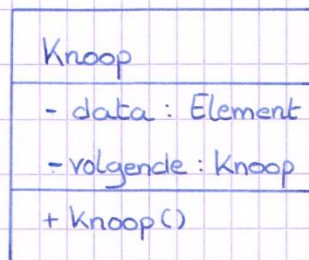 Knoop
- data : Element
- volgende : Knoop
+ Knoop()